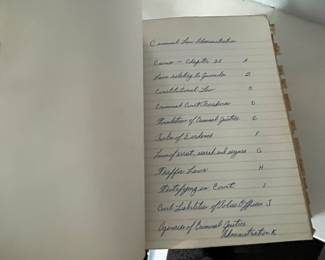 Criminal Law Administration
Crimes - Chapter 38 A
Laws relating to Juveniles B
Constitutional Law C
Criminal Court Procedures D
Foundations of Criminal Justice E
Rules of Evidence F
Laws of arrest, search and seizure G
Traffic Laws H
Testifying in Court I
Civil Liabilities of Police Officers J
Agencies of Criminal Justice
Administration K